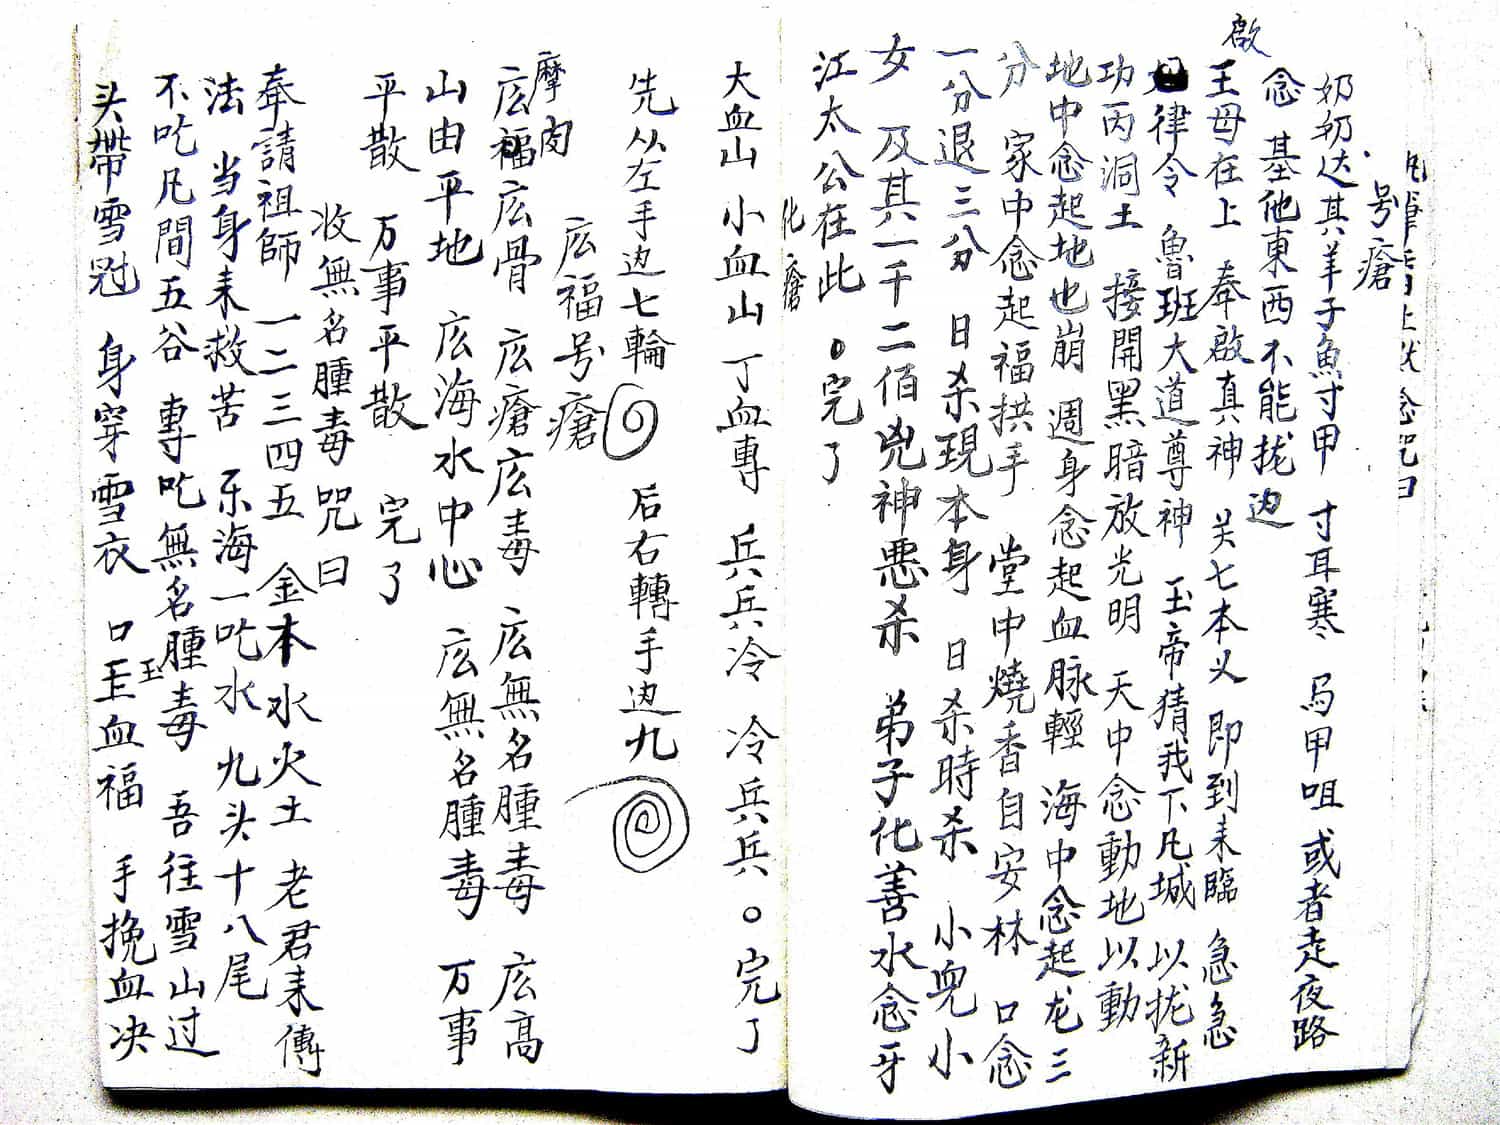 号瘡
奶奶达其羊子魚寸甲 寸耳寒 馬甲咀 或者走夜路
念 基他東西不能拢边
啟
王母在上 奉啟真神 关七本义 即到耒臨 急急
律令 魯班大道尊神 玉帝猜我下凡城 以拢新
功丙洞土 接開黑暗放光明 天中念動地以動
地中念起地也崩 週身念起血脉輕 海中念起龙三
分 家中念起福拱手 堂中燒香自安林 口念
一分退三分 日杀現本身 日杀時杀 小児小
女 及其一千二佰兇神悪杀 弟子化善水念牙
江太公在此 。完了
化瘡
大血山 小血山 丁血專 兵兵冷 冷兵兵 。完了
先从左手边七輪 后右轉手边九
広福号瘡
摩肉
広福広骨 広瘡広毒 広無名腫毒 広高
山由平地 広海水中心 広無名腫毒 万事
平散 万事平散 完了
收無名腫毒咒曰
奉請祖師 一二三四五 金本水火土 老君耒傳
法 当身耒救苦 东海一吃水 九头十八尾
不吃凡間五谷 專吃無名腫毒 吾往雪山过
头帶雪冠 身穿雪衣 口玉血福 手挽血决